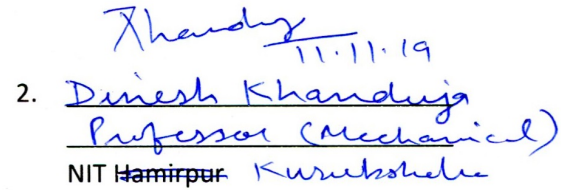 Khanduja
11.11.19
2. Dinesh Khanduja
Professor (Mechanical)
NIT Hamirpur Kurukshetra